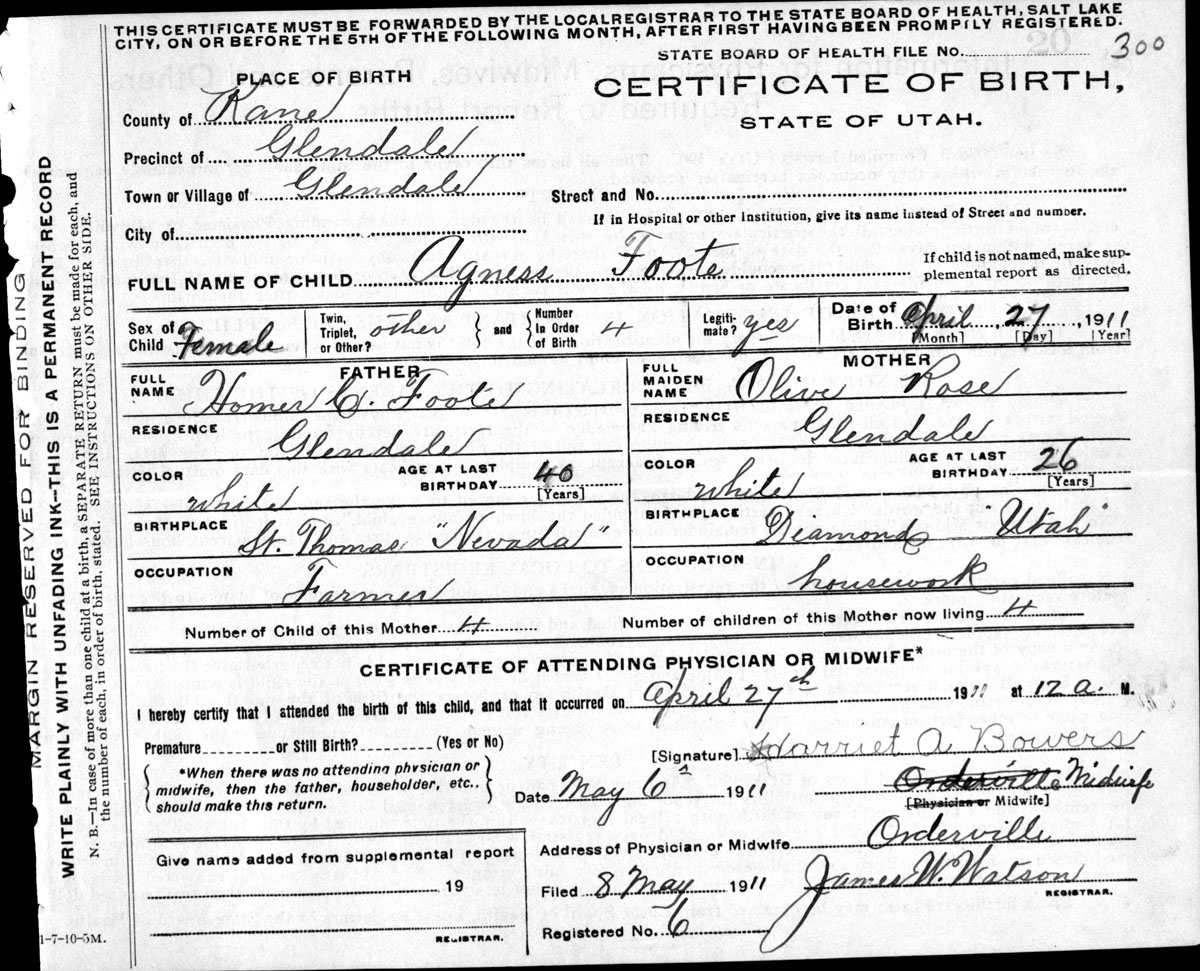 THIS CERTIFICATE MUST BE FORWARDED BY THE LOCAL REGISTRAR TO THE STATE BOARD OF HEALTH, SALT LAKE
CITY, ON OR BEFORE THE 5TH OF THE FOLLOWING MONTH, AFTER FIRST HAVING BEEN PROMPTLY REGISTERED.
STATE BOARD OF HEALTH FILE NO. 300
PLACE OF BIRTH
CERTIFICATE OF BIRTH,
STATE OF UTAH.
County of Kane
Precinct of Glendale
Town or Village of Glendale Street and No.
If in Hospital or other Institution, give its name instead of Street and number.
City of
FULL NAME OF CHILD Agness Foote If child is not named, make sup-
plemental report as directed.
Sex of Child Female Twin, Triplet, or Other? other and Number In Order of Birth 4 Legiti- mate? yes Date of Birth April 27, 1911
[Month] [Day] [Year]
FATHER MOTHER
FULL NAME Homer C. Foote FULL MAIDEN NAME Olive Rose
RESIDENCE Glendale RESIDENCE Glendale
COLOR white AGE AT LAST BIRTHDAY 40 [Years] COLOR white AGE AT LAST BIRTHDAY 26 [Years]
BIRTHPLACE St. Thomas "Nevada" BIRTHPLACE Deamond Utah
OCCUPATION Farmer OCCUPATION housework
Number of Child of this Mother 4 Number of children of this Mother now living 4
CERTIFICATE OF ATTENDING PHYSICIAN OR MIDWIFE*
I hereby certify that I attended the birth of this child, and that it occurred on April 27th 1911 at 12 a. M.
Premature or Still Birth? (Yes or No)
[Signature] Harriet A Bowers
*When there was no attending physician or
midwife, then the father, householder, etc.,
should make this return.
Date May 6 1911 Orderville Midwife
[Physician or Midwife]
Address of Physician or Midwife Orderville
Give name added from supplemental report
19
REGISTRAR.
Filed 8 May 1911 James W. Watson
REGISTRAR.
Registered No. 6
MARGIN RESERVED FOR BINDING
WRITE PLAINLY WITH UNFADING INK—THIS IS A PERMANENT RECORD
N. B.—In case of more than one child at a birth, a SEPARATE RETURN must be made for each, and
the number of each, in order of birth, stated. SEE INSTRUCTIONS ON OTHER SIDE.
1-7-10-5M.